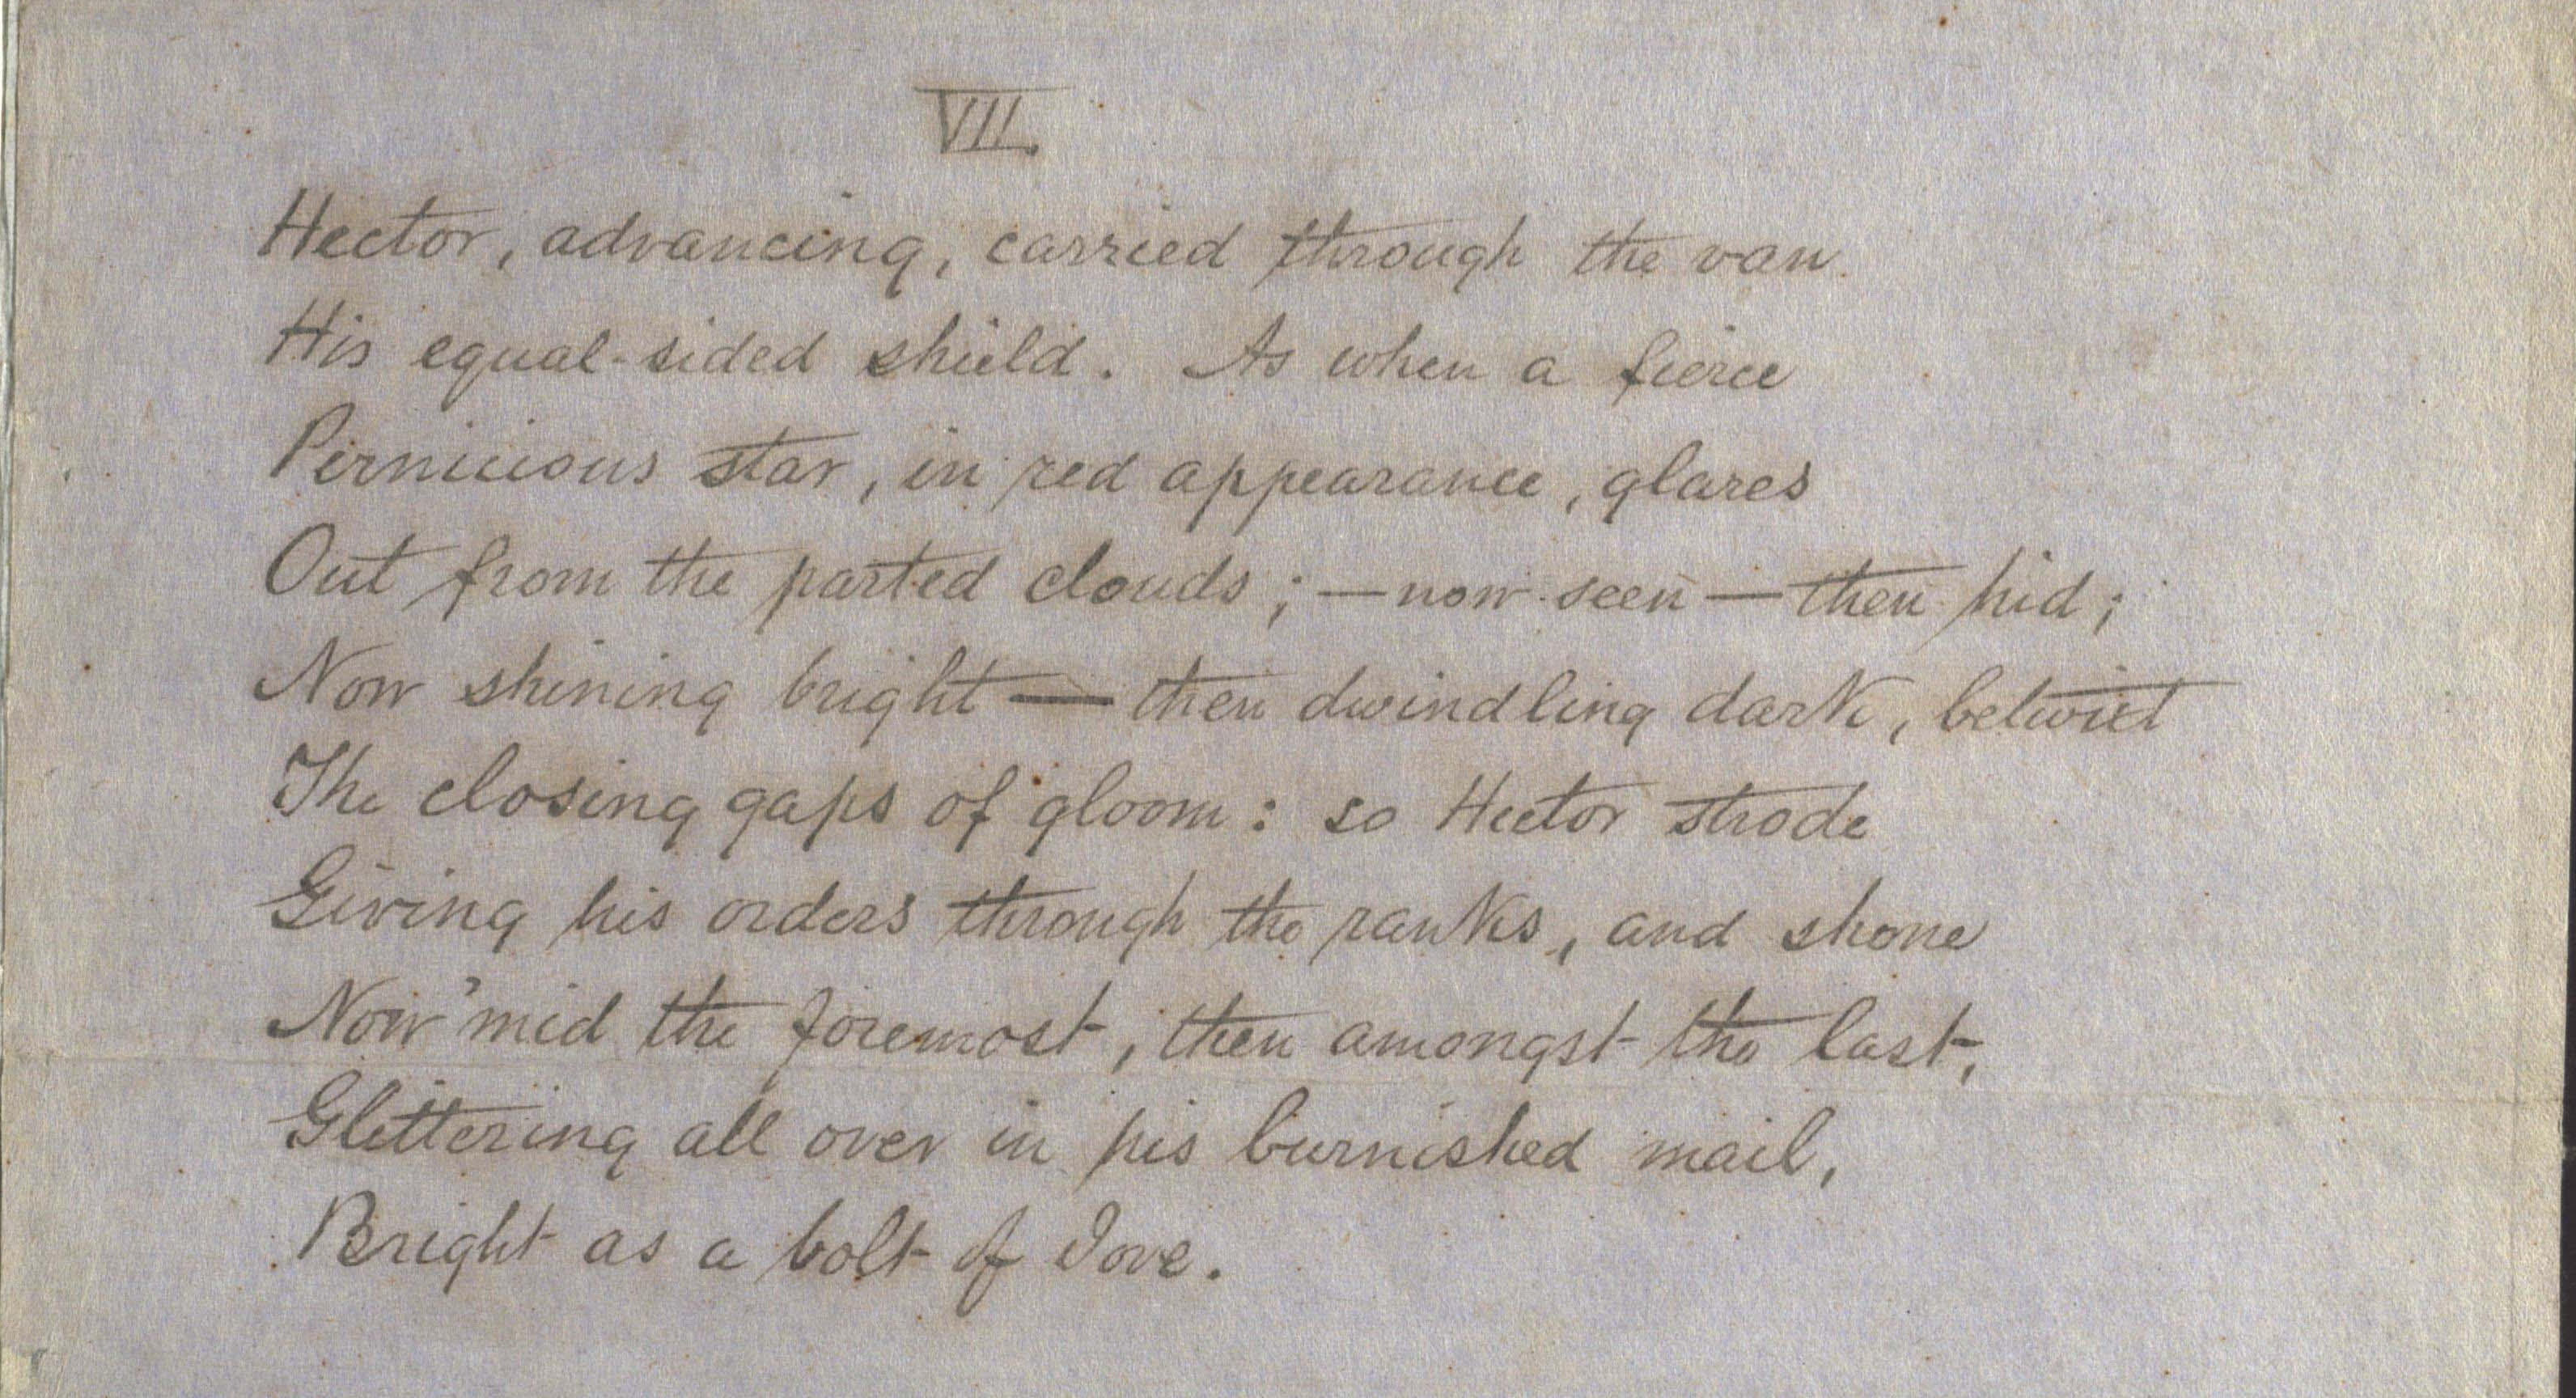 VII.
Hector, advancing, carried through the van
His equal-sided shield. As when a fierce
Pernicious star, in red appearance, glares
Out from the parted clouds; — now seen — then hid;
Now shining bright — then dwindling dark, betwixt
The closing gaps of gloom: so Hector strode
Giving his orders through the ranks, and shone
Now 'mid the foremost, then amongst the last,
Glittering all over in his burnished mail,
Bright as a bolt of Jove.